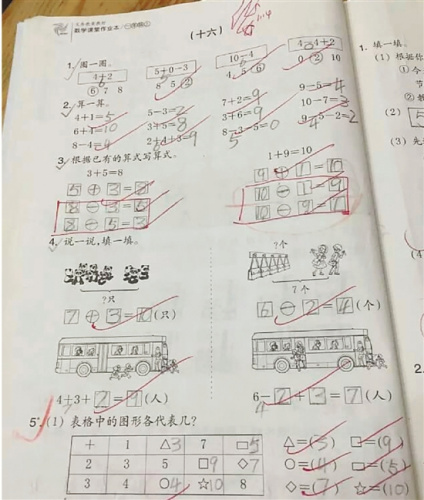 数学课堂作业本
(十六)
1. 圈一圈。
4+2
5+0-3
10-4
6 7 8
8 5 2
4 5 6
0 2 10
2. 算一算。
4+1=5
5-3=2
7+2=9
9-5=4
6+4=10
3+5=8
3+6=9
10-7=3
8-4=4
2+4+3=9
8-3-5=0
9-5-2=2
3. 根据已有的算式写算式。
3+5=8
1+9=10
5+3=8
9+1=10
8-3=5
10-1=9
8-5=3
10-9=1
4. 说一说,填一填。
?个
?只
7个
7+3=10(只)
6-2=4(个)
4+3+2=9(人)
6-2+3=7(人)
5.(1) 表格中的图形各代表几?
+ 1 △3 7 □5
2 3 5 □9 ◇7
3 4 ○4 ☆10 8
△=(3) □=(9)
○=(4) □=(5)
◇=(7) ☆=(10)
1. 填一填。
(1) 根据
① 今
节
② 按
(2) 5
(3) 先